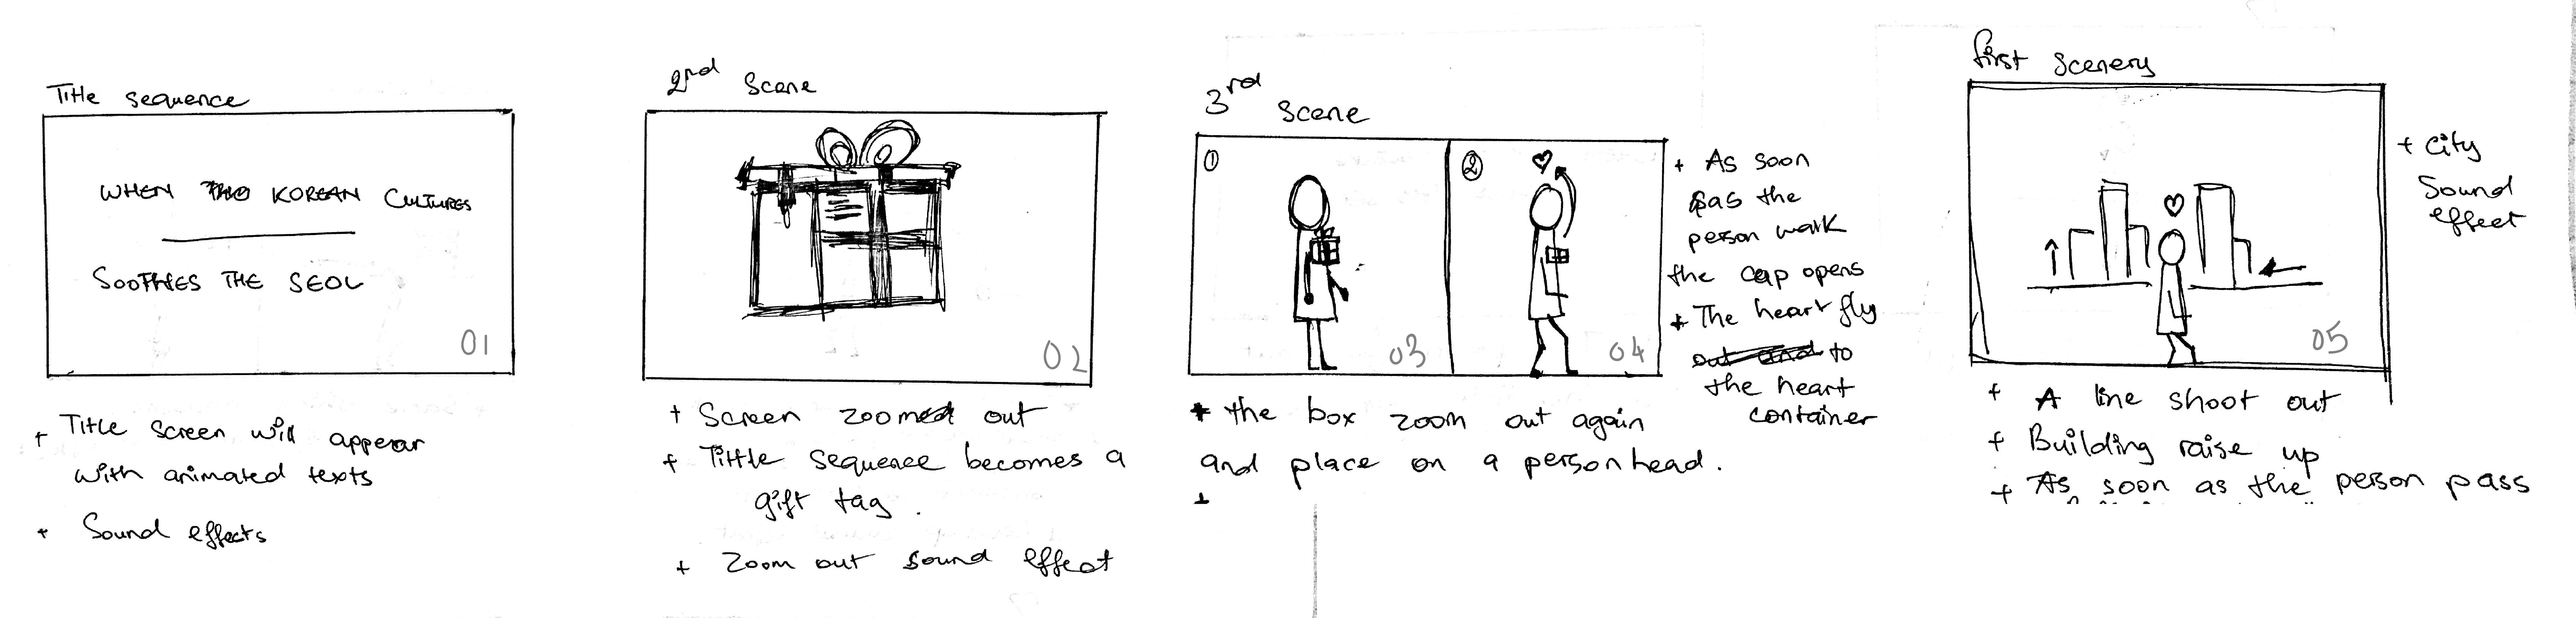 Title sequence
WHEN TWO KOREAN CULTURES
SOOTHES THE SEOL
01
+ Title screen will appear
with animated texts
+ Sound effects
2nd Scene
02
+ Screen zoomed out
+ Tittle sequence becomes a
gift tag.
+ Zoom out sound effect
3rd Scene
①
03
②
04
+ As soon
as the
person walk
the cap opens
+ The heart fly
out and to
the heart
container
+ the box zoom out again
and place on a person head.
+
first scenery
05
+ City
Sound
effect
+ A line shoot out
+ Building raise up
+ As soon as the person pass